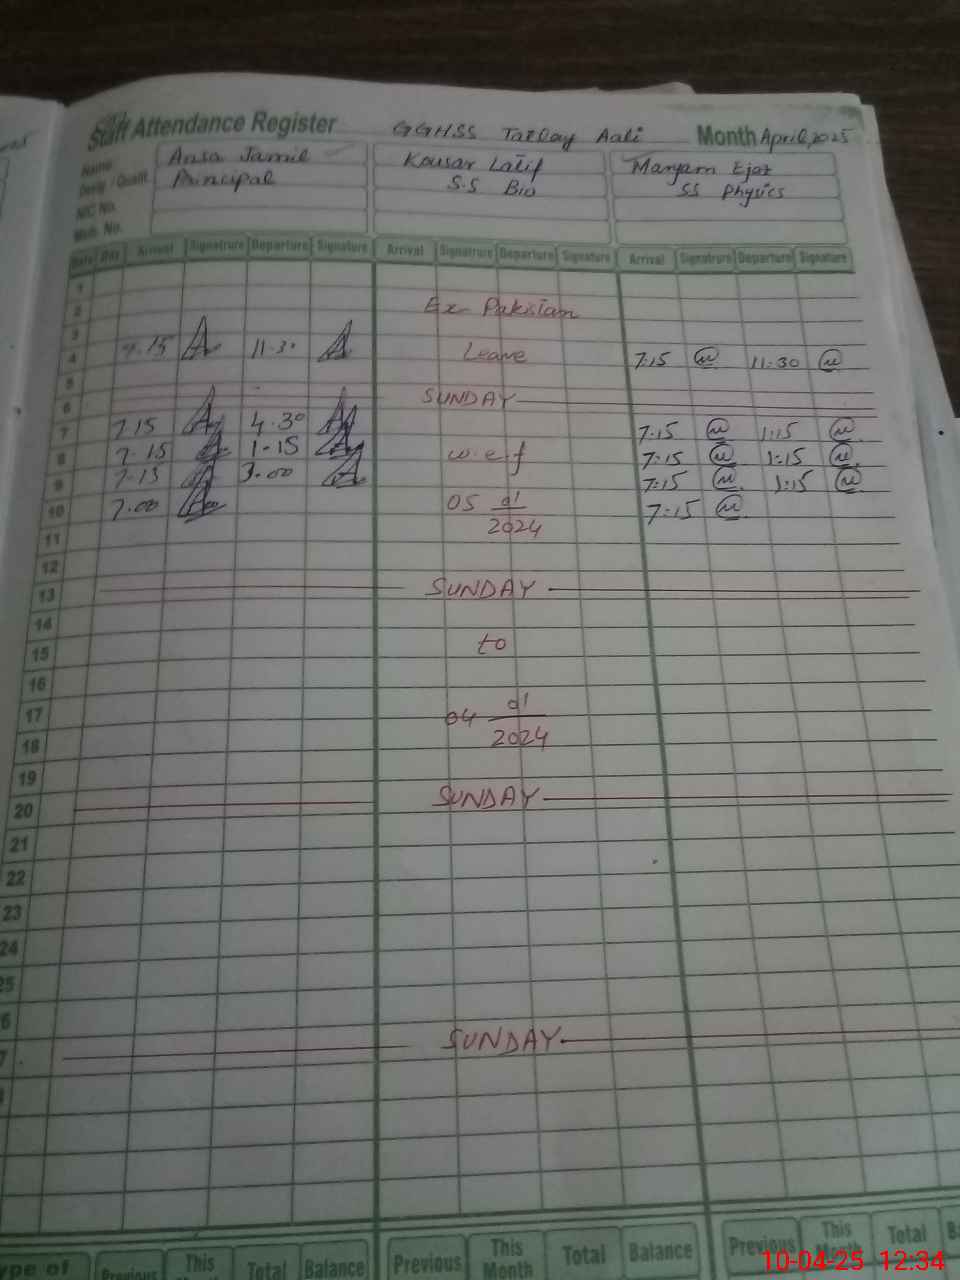 Staff Attendance Register GGHSS Tatlay Aali Month April, 2025
Name Ansa Jamil Kousar Latif Maryam Ejaz
Desig / Qualif. Principal S.S Bio SS Physics
NIC No.
Mob. No.
Date Day Arrival Signatrure Departure Signature Arrival Signatrure Departure Signature Arrival Signatrure Departure Signature
1
2 Ex- Pakistan
3
4 7.15 11.30 Leave 7:15 11:30
5
6 SUNDAY
7 7.15 4.30 7:15 1:15
8 7.15 1.15 w.e.f 7:15 1:15
9 7.15 3.00 7:15 1:15
10 7.00 05 01 7:15
2024
11
12
13 SUNDAY
14
15 to
16
17 04 01
18 2024
19
20 SUNDAY
21
22
23
24
25
6
7 SUNDAY
ype of Previous This Total Balance Previous This Month Total Balance Previous This Month Total
10-04-25 12:34